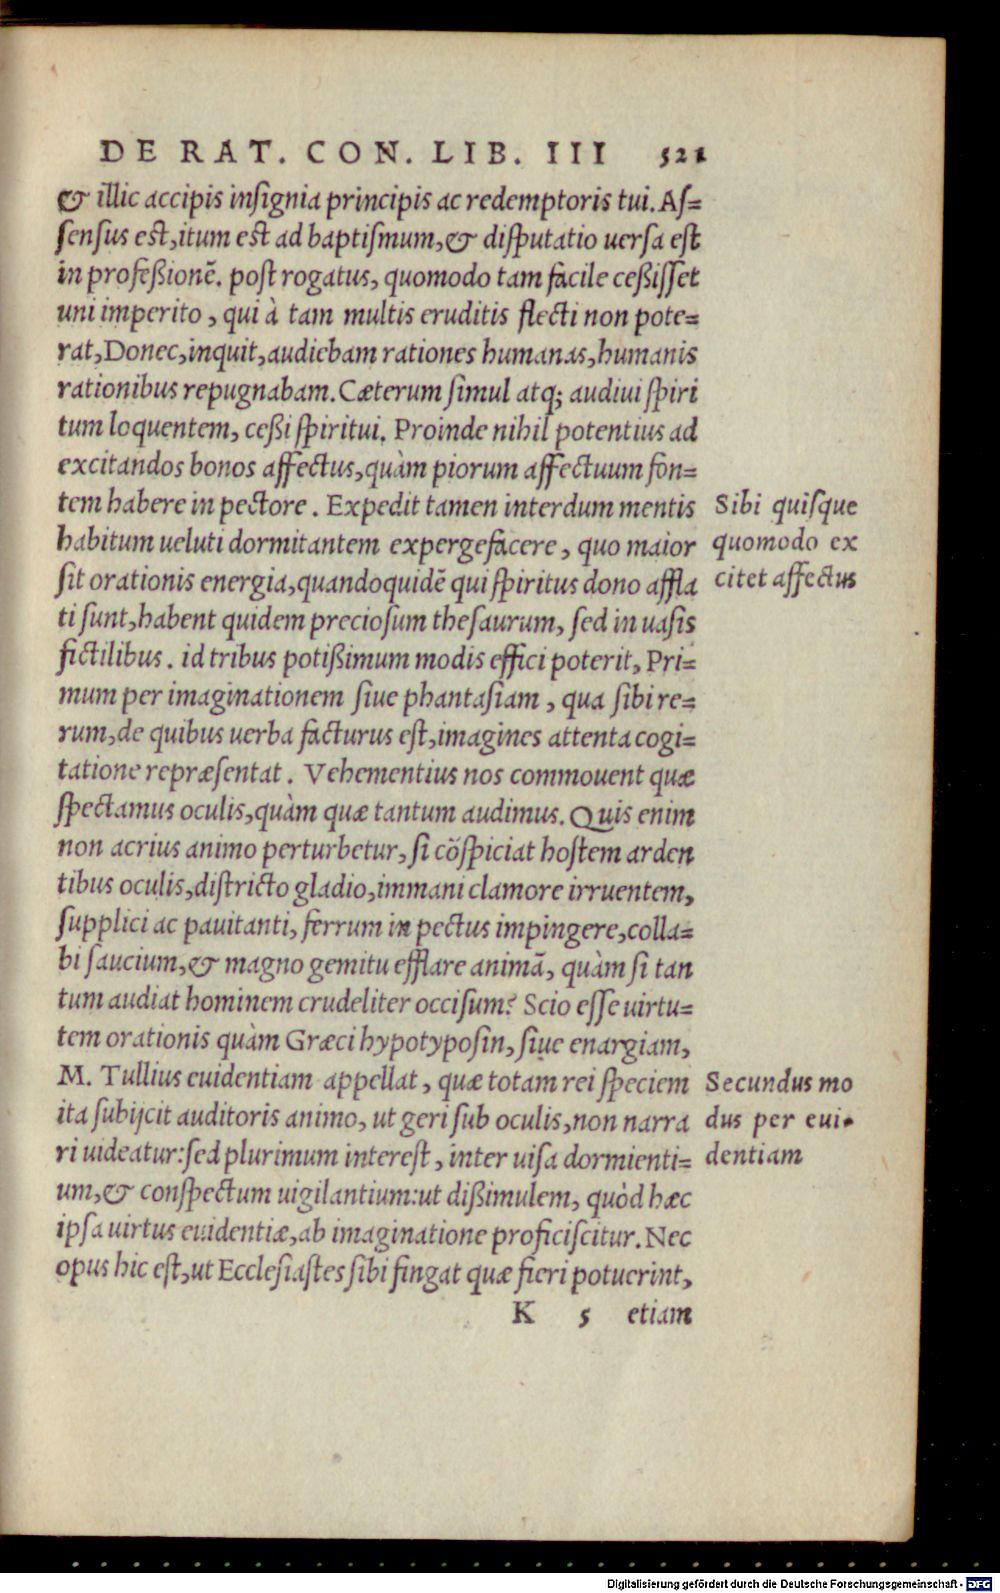 DE RAT. CON. LIB. III 521
& illic accipis insignia principis ac redemptoris tui. As=
sensus est, itum est ad baptismum, & disputatio uersa est
in professionē. post rogatus, quomodo tam facile cessisset
uni imperito, qui à tam multis eruditis flecti non pote=
rat, Donec, inquit, audiebam rationes humanas, humanis
rationibus repugnabam. Cæterum simul atq; audiui spiri
tum loquentem, cessi spiritui. Proinde nihil potentius ad
excitandos bonos affectus, quàm piorum affectuum fon=
tem habere in pectore. Expedit tamen interdum mentis
habitum ueluti dormitantem expergefacere, quo maior
sit orationis energia, quandoquidē qui spiritus dono affla
ti sunt, habent quidem preciosum thesaurum, sed in uasis
fictilibus. id tribus potissimum modis effici poterit, Pri=
mum per imaginationem siue phantasiam, qua sibi re=
rum, de quibus uerba facturus est, imagines attenta cogi=
tatione repræsentat. Vehementius nos commouent quæ
spectamus oculis, quàm quæ tantum audimus. Quis enim
non acrius animo perturbetur, si cōspiciat hostem arden
tibus oculis, districto gladio, immani clamore irruentem,
supplici ac pauitanti, ferrum in pectus impingere, colla=
bi saucium, & magno gemitu efflare animā, quàm si tan
tum audiat hominem crudeliter occisum? Scio esse uirtu=
tem orationis quàm Græci hypotyposin, siue enargiam,
M. Tullius euidentiam appellat, quæ totam rei speciem
ita subijcit auditoris animo, ut geri sub oculis, non narra
ri uideatur: sed plurimum interest, inter uisa dormienti=
um, & conspectum uigilantium: ut dissimulem, quòd hæc
ipsa uirtus euidentiæ, ab imaginatione proficiscitur. Nec
opus hic est, ut Ecclesiastes sibi fingat quæ fieri potuerint,
K 5 etiam
Sibi quisque
quomodo ex
citet affectus
Secundus mo
dus per eui-
dentiam
Digitalisierung gefördert durch die Deutsche Forschungsgemeinschaft - DFG